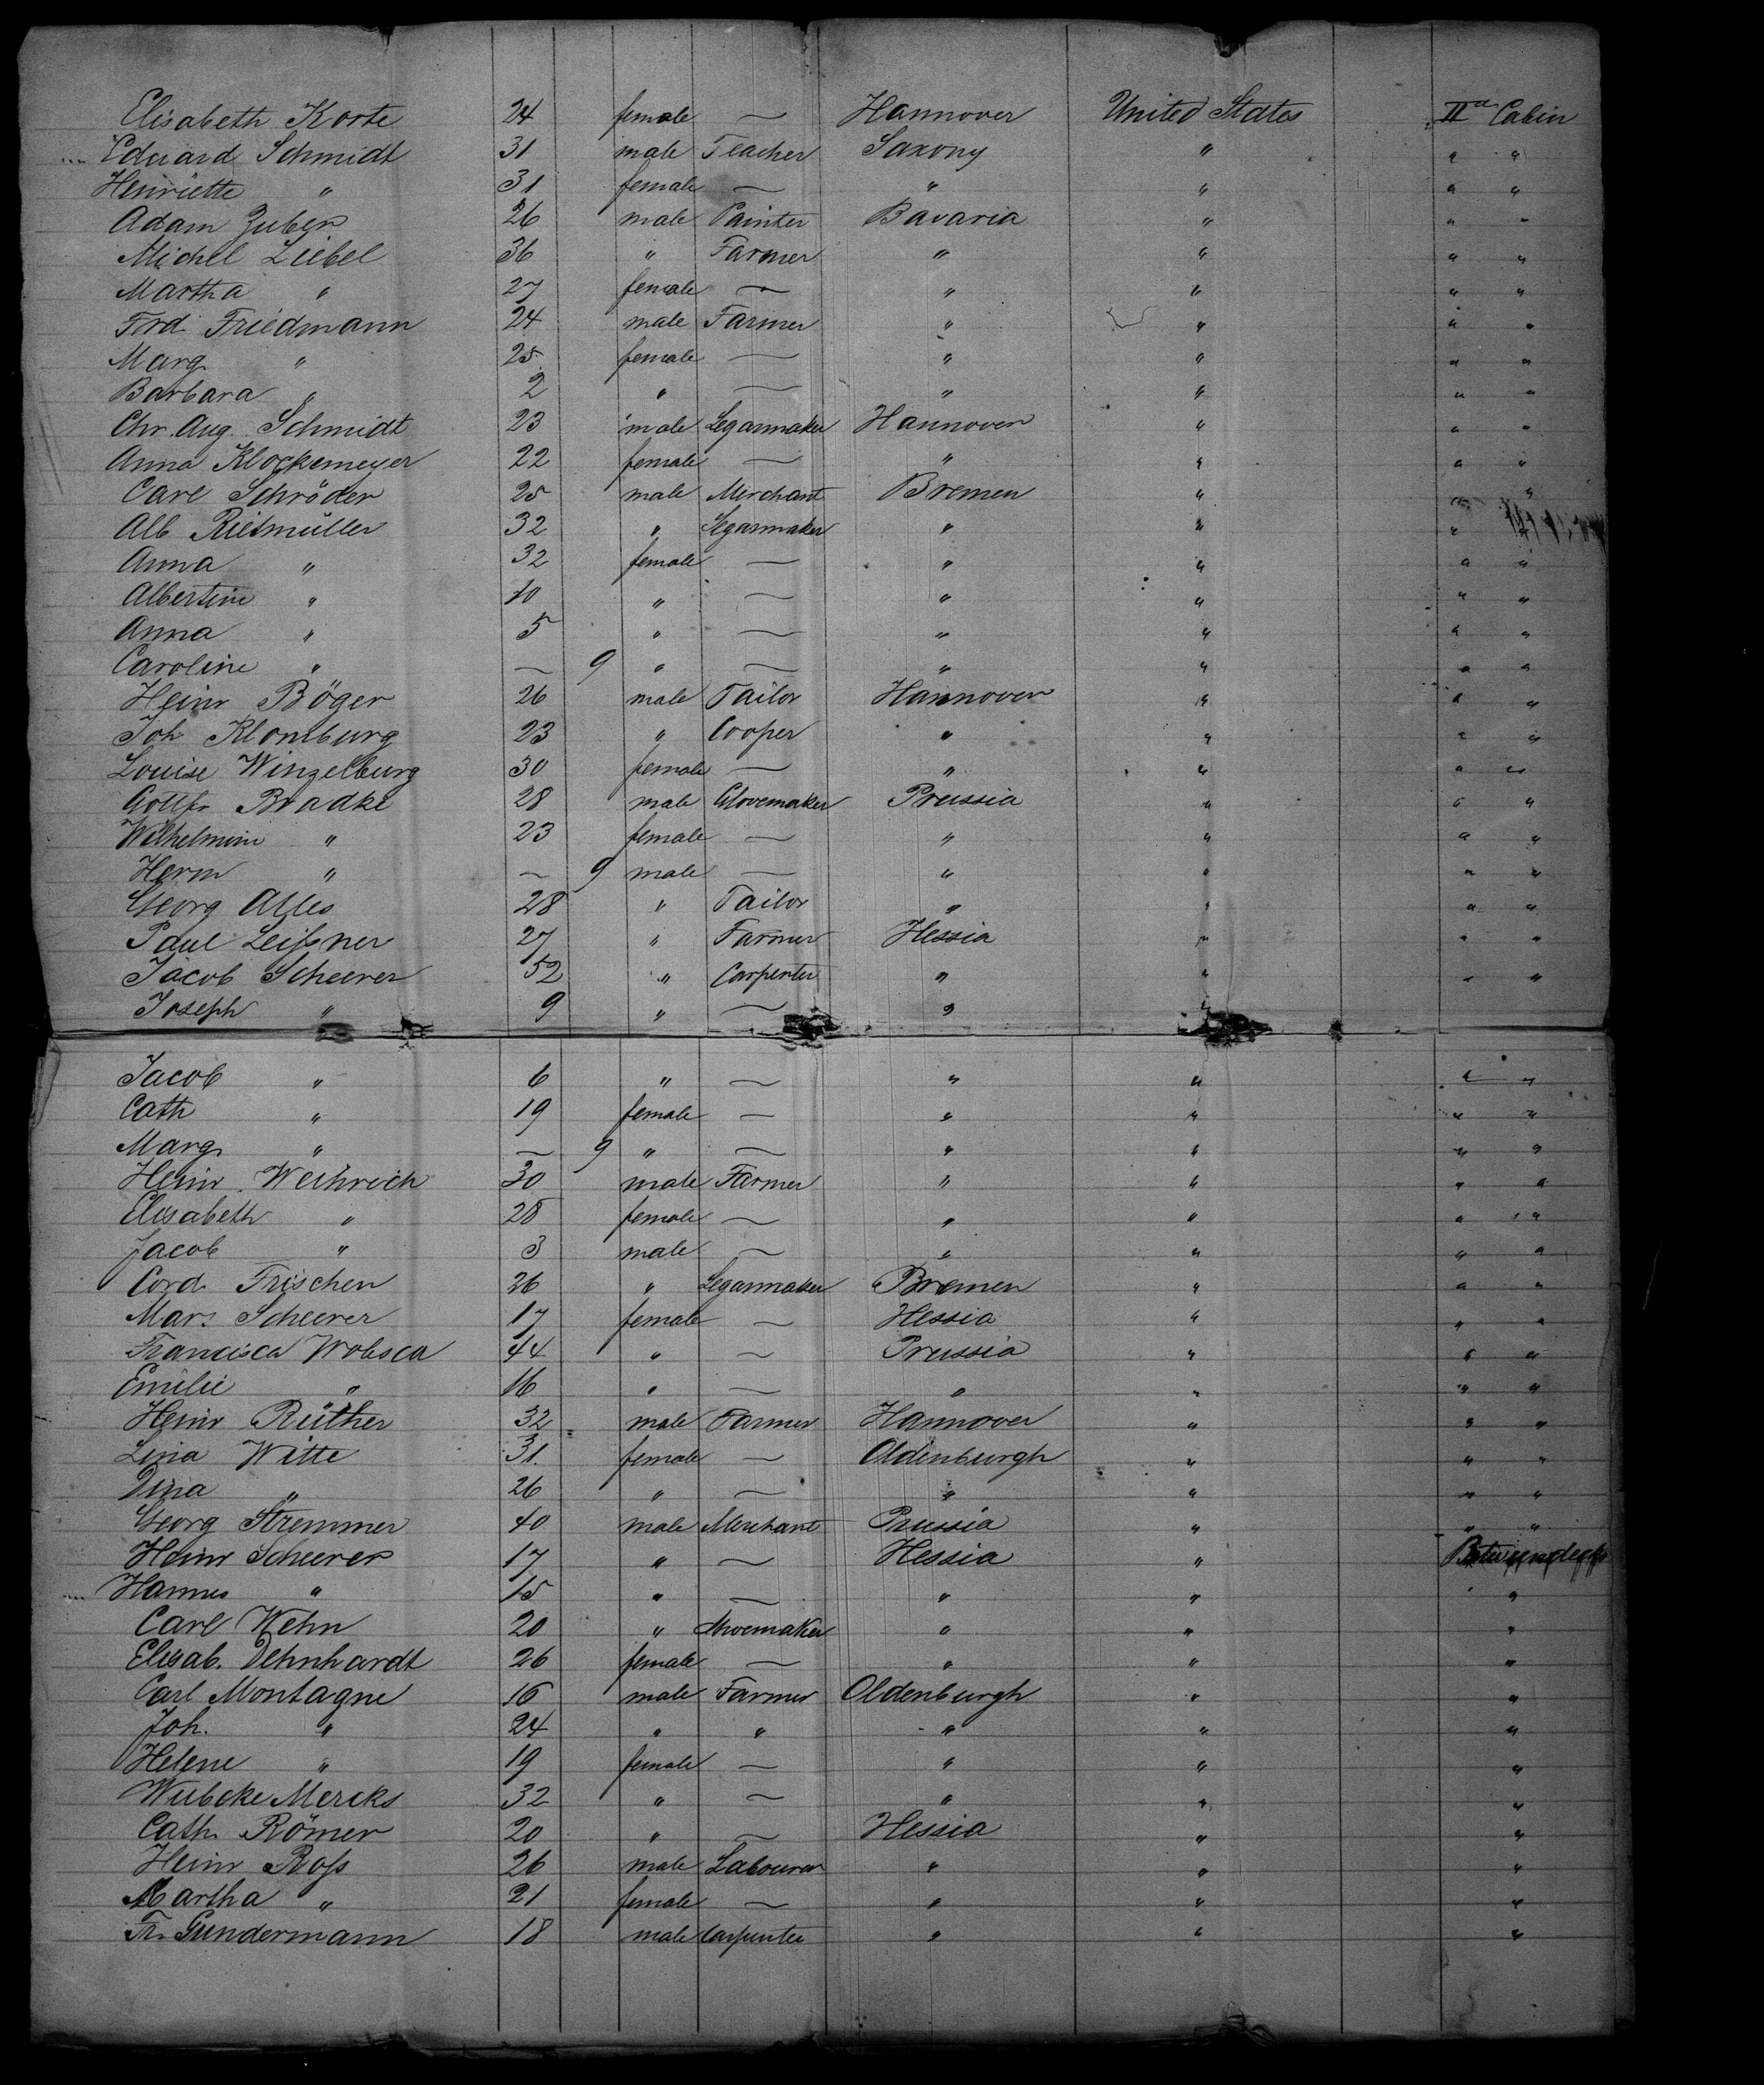 Elisabeth Korte 24 female — Hannover United States IIa Cabin
Eduard Schmidt 31 male Teacher Saxony " " "
Henriette " 31 female — " " " "
Adam Zuber 26 male Painter Bavaria " " "
Michel Liebel 36 " Farmer " " " "
Martha " 27 female — " " " "
Frd. Friedmann 24 male Farmer " " " "
Marg. " 25 female — " " " "
Barbara " 2 " — " " " "
Chr. Aug. Schmidt 23 male Segarmaker Hannover " " "
Anna Klockemeyer 22 female — " " " "
Carl Schröder 25 male Merchant Bremen " " "
Alb Rietmüller 32 " Segarmaker " " "
Anna " 32 female — " " " "
Albertine " 10 " — " " " "
Anna " 5 " — " " " "
Caroline " — 9 " — " " " "
Heinr Böger 26 male Tailor Hannover " " "
Joh Klomburg 23 " Cooper " " " "
Louise Winzelburg 30 female — " " " "
Gottfr Bradke 28 male Glovemaker Prussia " " "
Wilhelmine " 23 female — " " " "
Herm " — 9 male — " " " "
Georg Alles 28 " Tailor " " " "
Paul Leißner 27 " Farmer Hessia " " "
Jacob Scheerer 52 " Carpenter " " " "
Joseph " 9 " — " "
Jacob " 6 " — " " " "
Cath " 19 female — " " " "
Marg. " — 9 " — " " " "
Heinr. Weihrich 30 male Farmer " " " "
Elisabeth " 28 female — " " " "
Jacob " 3 male — " " " "
Cord. Frischen 26 " Segarmaker Bremen " " "
Mar. Scheerer 17 female — Hessia " " "
Francisca Wobsca 44 " — Prussia " " "
Emilie " 16 " — " " " "
Heinr Rüther 32 male Farmer Hannover " " "
Lina Witte 31. female — Oldenburgh " " "
Dina " 26 " — " " " "
Georg Stremmer 40 male Merchant Prussia " " "
Heinr Scheerer 17 " — Hessia "
Hannes " 15 " — " " "
Carl Wehn 20 " Shoemaker " " "
Elisab. Dehnhardt 26 female — " " "
Carl Montagne 16 male Farmer Oldenburgh " "
Joh. " 24 " " " " "
Helene " 19 female — " " "
Wubcke Mercks 32 " — " " "
Cath. Römer 20 " — Hessia " "
Heinr Roß 26 male Labourer " " "
Martha " 21 female — " " "
Fr. Gundermann 18 male Carpenter " " "